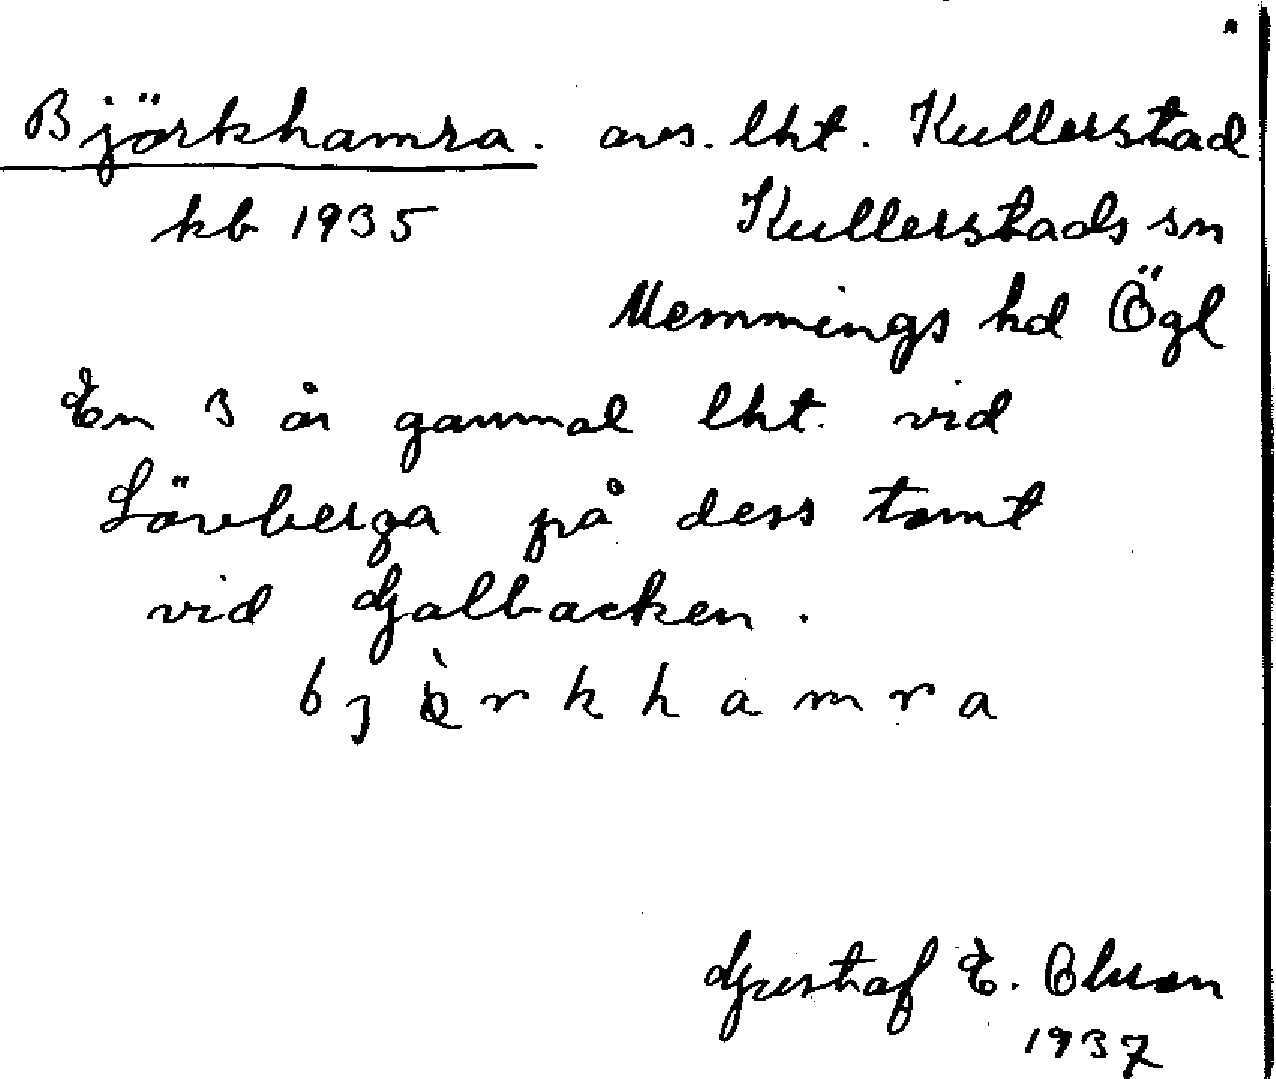 Björkhamra. avs. lht. Kullerstad
kb 1935 Kullerstads sn
Memmings hd Ögl
En 3 år gammal lht. vid
Lövberga på dess tomt
vid Galbacken.
bjèrkhamra
Gustaf E. Olsson
1937